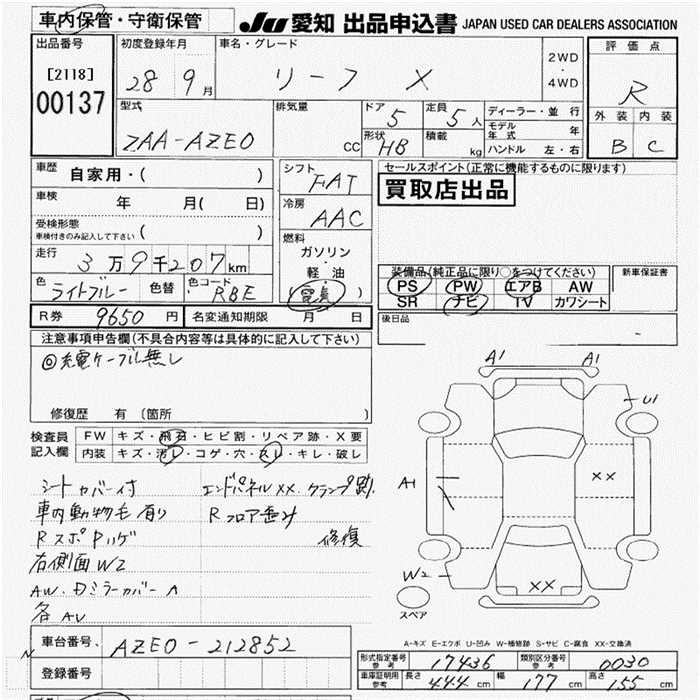 車内保管・守衛保管
JU 愛知 出品申込書 JAPAN USED CAR DEALERS ASSOCIATION
出品番号
[2118]
00137
初度登録年月
28 9月
車名・グレード
リーフ X
2WD
・
4WD
評価点
R
外装 内装
B C
型式
ZAA-AZE0
排気量
CC
ドア 5
定員 5人
形状 HB
積載 kg
ディーラー・並行
モデル年式 年
ハンドル 左・右
車歴
自家用・( )
車検 年 月( 日)
受検形態
車検付きのみ記入して下さい ( )
走行
3万9千207km
色 ライトブルー 色替 色コード RBE
シフト
FAT
冷房
AAC
燃料
ガソリン
・
軽油
(電気)
セールスポイント(正常に機能するものに限ります)
買取店出品
装備品(純正品に限り○をつけてください)
PS PW エアB AW
SR ナビ TV カワシート
新車保証書
後日品
R券 9650円 名変通知期限 月 日
注意事項申告欄(不具合内容等は具体的に記入して下さい)
◎充電ケーブル無し
修復歴 有 (箇所
検査員記入欄
FW キズ・飛石・ヒビ割・リペア跡・X要
内装 キズ・汚レ・コゲ・穴・スレ・キレ・破レ
シートカバー付
車内動物毛有り
Rスポ
右側面W2
各AV
エンドパネルXX.クランプ跡.
Rフロア歪み
修復
A1 A1
U1
A1
XX
W2
XX
スペア
A-キズ E-エクボ U-凹み W-補修跡 S-サビ C-腐食 XX-交換済
車台番号. AZE0-212852
登録番号
形式指定番号 参考 17436 類別区分番号 参考 0030
車庫証明用 参考 長さ 444cm 幅 177cm 高さ 155cm